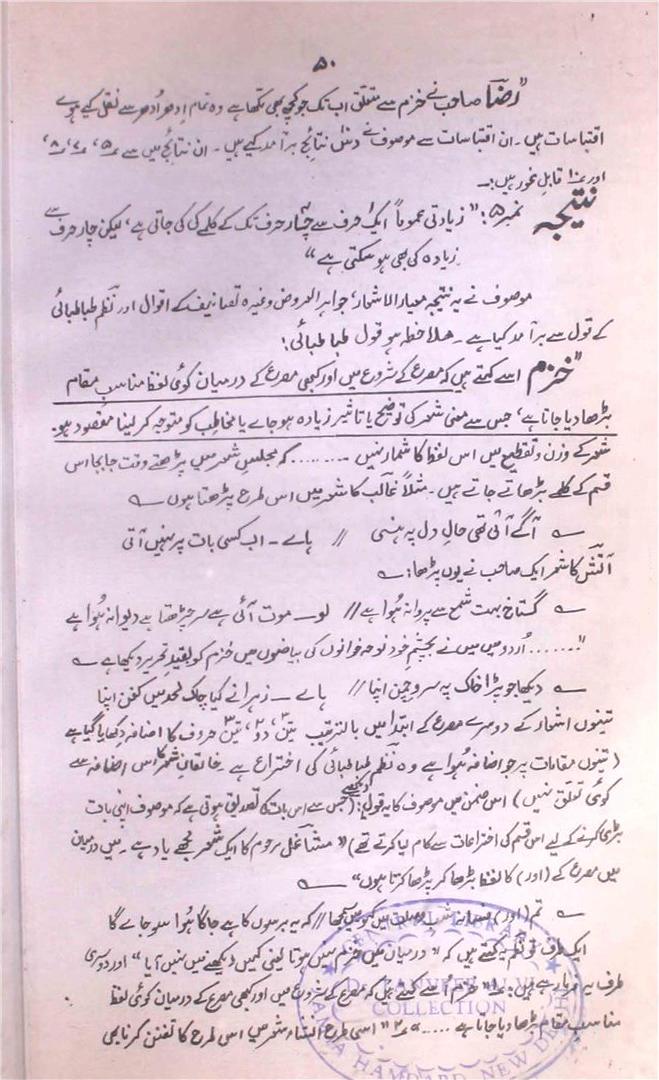 ۵۰
"رضا صاحب نے خزم سے متعلق اب تک جو کچھ بھی لکھا ہے وہ تمام ادھر اُدھر سے نقل کیے ہوے
اقتباسات ہیں۔ ان اقتباسات سے موصوف نے دس نتائج برآمد کیے ہیں۔ ان نتائج میں سے ۵، ۷، ۸،
اور ۱۰ قابلِ غور ہیں:۔
نتیجہ نمبر ۵: "زیادتی عموماً ایک حرف سے چار حرف تک کے کلمے کی کی جاتی ہے، لیکن چار حرف سے
زیادہ کی بھی ہو سکتی ہے"
موصوف نے یہ نتیجہ معیار الاشعار، جواہر العروض وغیرہ تصانیف کے اقوال اور نظم طباطبائی
کے قول سے برآمد کیا ہے۔ ملاحظہ ہو قول طباطبائی:
"خزم اسے کہتے ہیں کہ مصرع کے شروع میں اور کبھی مصرع کے درمیان کوئی لفظ مناسب مقام
بڑھا دیا جاتا ہے، جس سے معنی شعر کی توضیح یا تاثیر زیادہ ہو جاے یا مخاطب کو متوجہ کر لینا مقصود ہو۔
شعر کے وزن و تقطیع میں اس لفظ کا شمار نہیں ........ کہ مجلسِ شعر میں پڑھتے وقت جابجا اس
قسم کے کلمے بڑھاتے جاتے ہیں۔ مثلاً غالب کا شعر میں اس طرح پڑھتا ہوں ؎
؎ آگے آتی تھی حالِ دل پہ ہنسی // ہاے ۔ اب کسی بات پر نہیں آتی
آتش کا شعر ایک صاحب نے یوں پڑھا:۔
؎ گستاخ بہت شمع سے پروانہ ہُوا ہے // لو۔ موت آئی ہے سر چڑھتا ہے دیوانہ ہُوا ہے
"....... اُردو میں میں نے بچشمِ خود نوحہ خوانوں کی بیاضوں میں خزم کو بقیدِ تحریر دیکھا ہے ؎
؎ دیکھا جو پڑا خاک پہ سروِ چمن اپنا // ہاے ۔ زہرا نے کیا چاک لحد میں کفن اپنا
تینوں اشعار کے دوسرے مصرع کے ابتدا میں بالترتیب تین ۳، دو ۲، تین ۳ حروف کا اضافہ دکھایا گیا ہے
(تینوں مقامات پر جو اضافہ ہُوا ہے وہ نظم طباطبائی کی اختراع ہے۔ خالقانِ شعر کا اس اضافہ سے
کوئی تعلق نہیں) اس ضمن میں موصوف کا یہ قول دیکھیے: (جس سے اس بات کی تصدیق ہوتی ہے کہ موصوف اپنی بات
بڑی کرنے کے لیے اس قسم کی اختراعات سے کام لیا کرتے تھے) "مشاغل مرحوم کا ایک شعر مجھے یاد ہے۔ میں درمیان
میں مصرع کے (اور) کا لفظ بڑھا کر پڑھا کرتا ہوں" ؎
؎ تم (اور) فسانہ شبِ وصلت میں کہو میں سمجھا // کہ یہ برسوں کا ہے جاگا ہُوا سو جاے گا
ایک طرف تو نظم یہ کہتے ہیں کہ "درمیان میں خزم نہیں ہوتا یعنی کہیں دیکھنے میں نہیں آیا" اور دوسری
طرف یہ فرما رہے ہیں: "خزم اُسے کہتے ہیں کہ مصرع کے شروع میں اور کبھی مصرع کے درمیان کوئی لفظ
مناسب مقام بڑھا دیا جاتا ہے ....... " اسی طرح انشاء شعر میں اس طرح کا تفنن کرنا بھی
CENTRAL LIBRARY
COLLECTION
JAMIA HAMDARD NEW DELHI